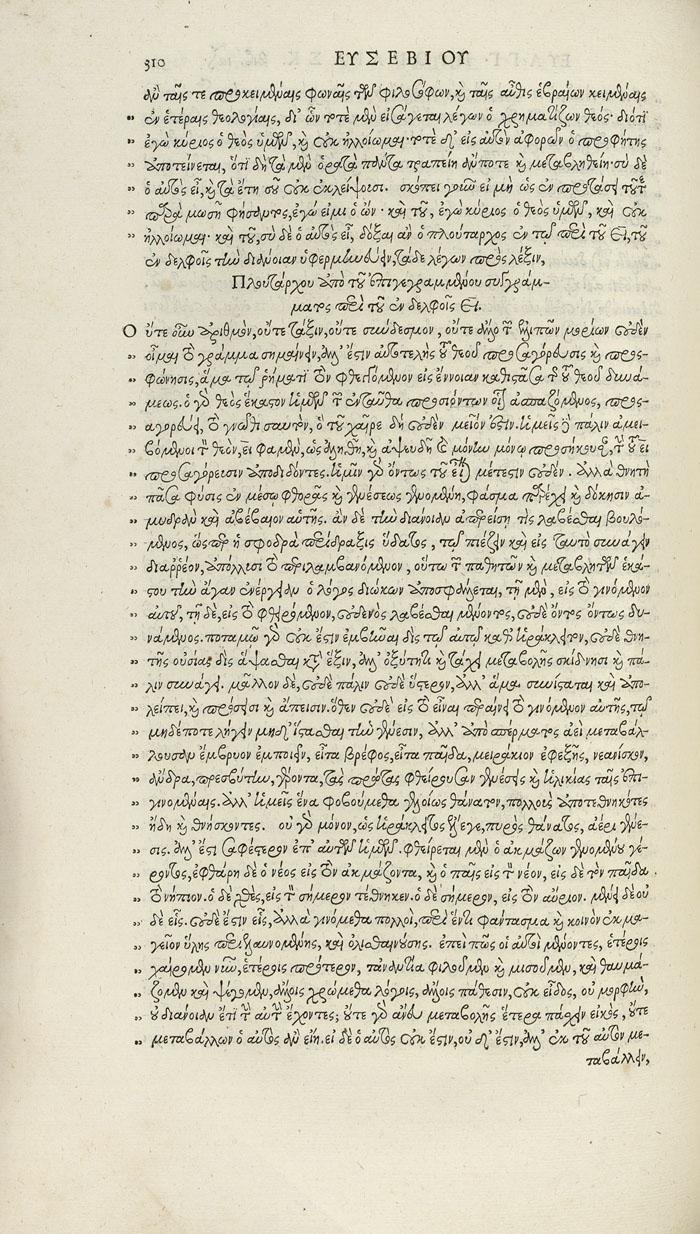 310 ΕΥΣΕΒΙΟΥ
ἐν ταῖς τε προκειμέναις φωναῖς τῶν φιλοσόφων, καὶ ταῖς αὖθις ἑβραίων κειμέναις
ἐν ἑτέραις θεολογίαις, δι' ὧν τοτὲ μὲν εἰσάγεται λέγων ὁ χρηματίζων θεός· διότι
ἐγὼ κύριος ὁ θεὸς ὑμῶν, καὶ οὐκ ἠλλοίωμαι· τοτὲ δ' εἰς αὐτὸν ἀφορῶν ὁ προφήτης
ἀποτείνεται, ὅτι δὴ τὰ μὲν ὁρατὰ πάντα τραπείη ἄν ποτε καὶ μεταβληθείη· σὺ δὲ
ὁ αὐτὸς εἶ, καὶ τὰ ἔτη σοῦ οὐκ ἐκλείψουσι. σκόπει γοῦν εἰ μὴ ὡς ἐν προτάσει τοῦ
παρὰ μωσῆ φήσαντος, ἐγώ εἰμι ὁ ὤν· καὶ τοῦ, ἐγὼ κύριος ὁ θεὸς ὑμῶν, καὶ οὐκ
ἠλλοίωμαι· καὶ τοῦ, σὺ δὲ ὁ αὐτὸς εἶ, δόξαι ἂν ὁ πλούταρχος ἐν τῷ περὶ τοῦ ΕΙ, τοῦ
ἐν δελφοῖς τὴν διάνοιαν ὑφερμηνεύειν, τάδε λέγων πρὸς λέξιν,
Πλουτάρχου ἀπὸ τοῦ ἐπιγεγραμμένου συγγράμ-
ματος περὶ τοῦ ἐν δελφοῖς ΕΙ.
Οὔτε οὖν ἀριθμὸν, οὔτε τάξιν, οὔτε σύνδεσμον, οὔτε ἄλλο τῶν ἐλλιπῶν μορίων οὐδὲν
οἶμαι τὸ γράμμα σημαίνειν, ἀλλ' ἔστιν αὐτοτελὴς τοῦ θεοῦ προσαγόρευσις καὶ προσ-
φώνησις, ἅμα τῷ ῥήματι τὸν φθεγγόμενον εἰς ἔννοιαν καθιστᾶσα τῆς τοῦ θεοῦ δυνά-
μεως. ὁ γὰρ θεὸς ἕκαστον ἡμῶν τῶν ἐνταῦθα προσιόντων οἷον ἀσπαζόμενος, προσ-
αγορεύει, τὸ γνῶθι σαυτὸν, ὃ τοῦ χαῖρε δὴ οὐδὲν μεῖόν ἐστιν. ἡμεῖς δὲ πάλιν ἀμει-
βόμενοι τὸν θεὸν, εἶ φαμὲν, ὡς ἀληθῆ, καὶ ἀψευδῆ καὶ μόνην μόνῳ προσήκουσαν, τὴν τοῦ εἶ
προσαγόρευσιν ἀποδιδόντες. ἡμῖν γὰρ ὄντως τοῦ εἶναι μέτεστιν οὐδέν. ἀλλὰ θνητὴ
πᾶσα φύσις ἐν μέσῳ φθορᾶς καὶ γενέσεως γενομένη, φάσμα παρέχει καὶ δόκησιν ἀ-
μυδρὰν καὶ ἀβέβαιον αὑτῆς. ἂν δὲ τὴν διάνοιαν ἀπερείσῃ τις λαβέσθαι βουλό-
μενος, ὥσπερ ἡ σφοδρὰ περίδραξις ὕδατος, τῷ πιέζειν καὶ εἰς ταυτὸ συνάγειν
διαρρέον, ἀπόλλυσι τὸ περιλαμβανόμενον, οὕτω τῶν παθητῶν καὶ μεταβλητῶν ἑκά-
στου τὴν ἄγαν ἐνέργειαν ὁ λόγος διώκων ἀποσφάλλεται, τῇ μὲν, εἰς τὸ γινόμενον
αὐτοῦ, τῇ δὲ, εἰς τὸ φθειρόμενον, οὐδενὸς λαβέσθαι μένοντος, οὐδὲ ὄντος ὄντως δυ-
νάμενος. ποταμῷ γὰρ οὐκ ἔστιν ἐμβῆναι δὶς τῷ αὐτῷ καθ' ἡράκλειτον, οὐδὲ θνη-
τῆς οὐσίας δὶς ἅψασθαι κατὰ ἕξιν, ἀλλ' ὀξύτητι καὶ τάχει μεταβολῆς σκίδνησι καὶ πά-
λιν συνάγει. μᾶλλον δὲ, οὐδὲ πάλιν οὐδὲ ὕστερον, ἀλλ' ἅμα συνίσταται καὶ ἀπο-
λείπει, καὶ πρόσεισι καὶ ἄπεισιν. ὅθεν οὐδὲ εἰς τὸ εἶναι περαίνει τὸ γινόμενον αὐτῆς, τῷ
μηδέποτε λήγειν μηδ' ἵστασθαι τὴν γένεσιν, ἀλλ' ἀπὸ σπέρματος ἀεὶ μεταβάλ-
λουσαν ἔμβρυον ἐμποιεῖν, εἶτα βρέφος, εἶτα παῖδα, μειράκιον ἐφεξῆς, νεανίσκον,
ἄνδρα, πρεσβύτην, γέροντα, τὰς πρώτας φθείρουσαν γενέσεις καὶ ἡλικίας ταῖς ἐπι-
γινομέναις. ἀλλ' ἡμεῖς ἕνα φοβούμεθα γελοίως θάνατον, πολλοὺς ἀποτεθνηκότες
ἤδη καὶ θνήσκοντες. οὐ γὰρ μόνον, ὡς ἡράκλειτος ἔλεγε, πυρὸς θάνατος, ἀέρι γένε-
σις. ἀλλ' ἔτι σαφέστερον ἐπ' αὐτῶν ἡμῶν. φθείρεται μὲν ὁ ἀκμάζων γενομένου γέ-
ροντος, ἐφθάρη δὲ ὁ νέος εἰς τὸν ἀκμάζοντα, καὶ ὁ παῖς εἰς τὸν νέον, εἰς δὲ τὸν παῖδα
τὸ νήπιον. ὁ δὲ χθὲς, εἰς τὸν σήμερον τέθνηκεν. ὁ δὲ σήμερον, εἰς τὸν αὔριον. μένει δὲ οὐ
δὲ εἷς. οὐδὲ ἔστιν εἷς, ἀλλὰ γινόμεθα πολλοὶ, περὶ ἕν τι φάντασμα καὶ κοινὸν ἐκμα-
γεῖον ὕλης περιελαυνομένης, καὶ ὀλισθανούσης. ἐπεὶ πῶς οἱ αὐτοὶ μένοντες, ἑτέροις
χαίρομεν νῦν, ἑτέροις πρότερον, τἀναντία φιλοῦμεν καὶ μισοῦμεν, καὶ θαυμά-
ζομεν καὶ ψέγομεν, ἄλλοις χρώμεθα λόγοις, ἄλλοις πάθεσιν, οὐκ εἶδος, οὐ μορφὴν,
οὐ διάνοιαν ἔτι τὴν αὐτὴν ἔχοντες; οὔτε γὰρ ἄνευ μεταβολῆς ἕτερα πάσχειν εἰκὸς, οὔτε
μεταβάλλων ὁ αὐτὸς ἂν εἴη. εἰ δὲ ὁ αὐτὸς οὐκ ἔστιν, οὐ δ' ἔστιν, ἀλλ' ἐκ τοῦ αὐτοῦ με-
ταβάλλειν,